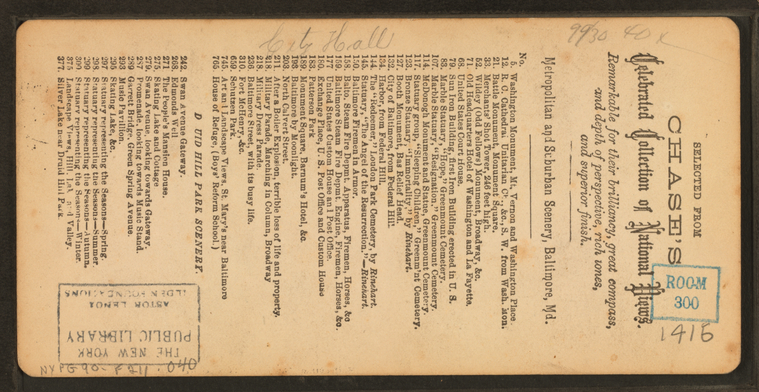 City Hall
99/30 40x
SELECTED FROM
CHASE'S
Celebrated Collection of National Views.
Remarkable for their brilliancy, great compass,
and depth of perspective, rich tones,
and superior finish.
Metropolitan and Suburban Scenery, Baltimore, Md.
No.
5. Washington Monument, Mt. Vernon and Washington Place
12. R. Andra
21. Battle Monument, Monument Square.
33. Merchants' Shot Tower, 246 feet high.
52. Wildey (Odd Fellows) Monument, Broadway, &c.
71. Old Headquarters Hotel of Washington and La Fayette.
68. United States Court House.
79. Sun Iron Building, first Iron Building erected in U. S.
83. Marble Statuary, "Hope," Greenmount Cemetery.
107. Marble Statuary, "Resignation," Greenmount Cemetery.
114. McDonogh Monument and Statue, Greenmount Cemetery.
117. Statuary group, "Sleeping Children," Greenm'nt Cemetery.
123. Bronze Statue, "Immortality" by Rinehart.
127. Booth Monument, Bas Relief Head.
City of Baltimore, from Federal Hill.
134. Harbor, from Federal Hill.
144. The "Redeemer," London Park Cemetery, by Rinehart.
145. Statuary, "Angel of the Resurrection,"—Rinehart.
150. Baltimore Firemen in Armor.
158. Balto. Steam Fire Dept. Apparatus, Firemen, Horses, &c
159. Baltimore Steam Fire Dep't. Engine, Firemen, Horses, &c.
177. United States Custom House and Post Office.
180. Exchange Place, U. S. Post Office and Custom House
183. Patterson Park.
189. Monument Square, Barnum's Hotel, &c.
193. Baltimore by Moonlight.
203. North Calvert Street.
211. After a Boiler Explosion, terrible loss of life and property.
212. Military Parade, Marching in Column, Broadway
218. Military Dress Parade.
239. Baltimore Street, with its busy life.
310. Fort McHenry.
659. Schutzen Park.
745. A and Landscape View, St. Mary's near Baltimore
765. House of Refuge, (Boys' Reform School.)
D UID HILL PARK SCENERY.
242. Swan Avenue Gateway.
268. Edmonds Well
271. The People's Mansion House.
275. Skating Lake and Costumes.
279. Swan Avenue, looking towards Gateway.
287. Promenade, looking towards Music Stand.
289. Grecct Bridge, Green Spring Avenue.
293. Music Pavilion.
295. Skating Lake, &c.
297. Statuary representing the Seasons—Spring.
298. Statuary representing the Seasons—Summer.
299. Statuary representing the Seasons—Autumn.
300. Statuary representing the Seasons—Winter.
375. Landscape View, Hill and Valley.
377. Silver Lake near Druid Hill Park
ROOM
300
1416
THE NEW YORK
PUBLIC LIBRARY
ASTOR LENOX
TILDEN FOUNDATIONS